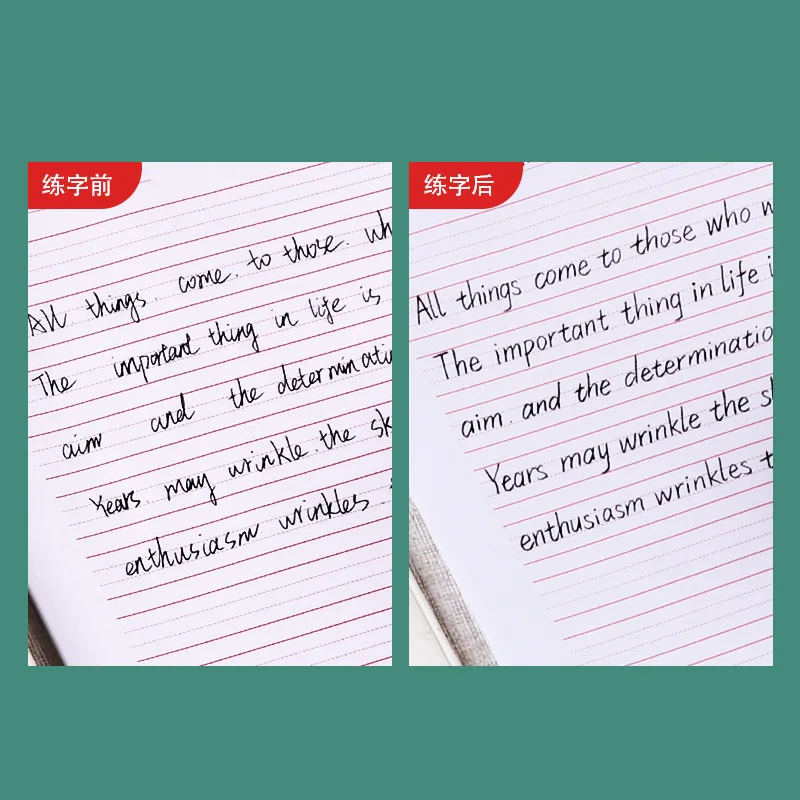 练字前
All things. come. to those. wh
The important thing in life is
aim and the determinati
Years may wrinkle. the sk
enthusiasm wrinkles
练字后
All things come to those who w
The important thing in life i
aim. and the determinatio
Years may wrinkle the sk
enthusiasm wrinkles t